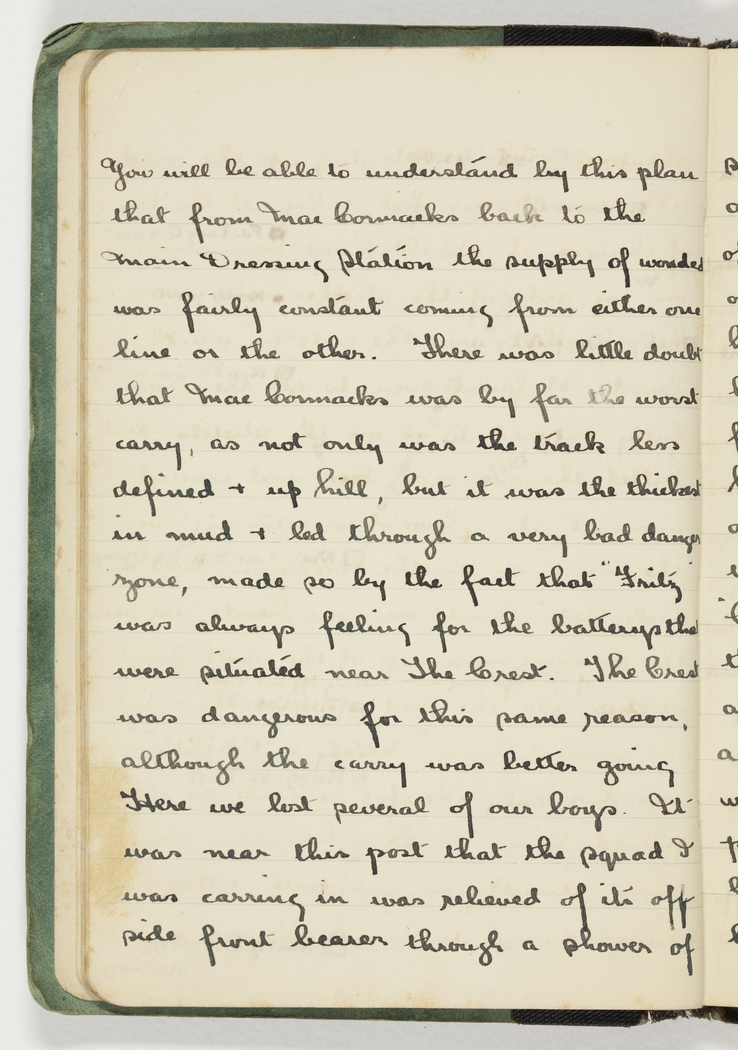 You will be able to understand by this plan
that from Mac Cormacks back to the
Main Dressing Station the supply of wonded
was fairly constant coming from either one
line or the other. There was little doubt
that Mac Cormacks was by far the worst
carry, as not only was the track less
defined + up hill, but it was the thickest
in mud + led through a very bad danger
zone, made so by the fact that "Fritz"
was always feeling for the batterys that
were situated near The Crest. The Crest
was dangerous for this same reason,
although the carry was better going
Here we lost several of our boys. It
was near this post that the squad I
was carring in was relieved of its off
side front bearer through a shower of